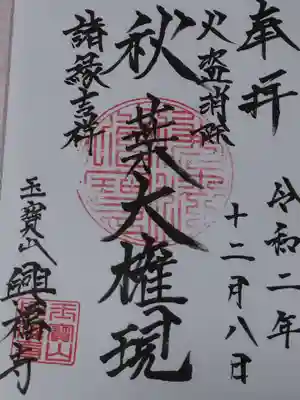 奉拝
令和二年
十二月八日
火盗消除
秋葉大權現
諸縁吉祥
玉寶山
玉寶山